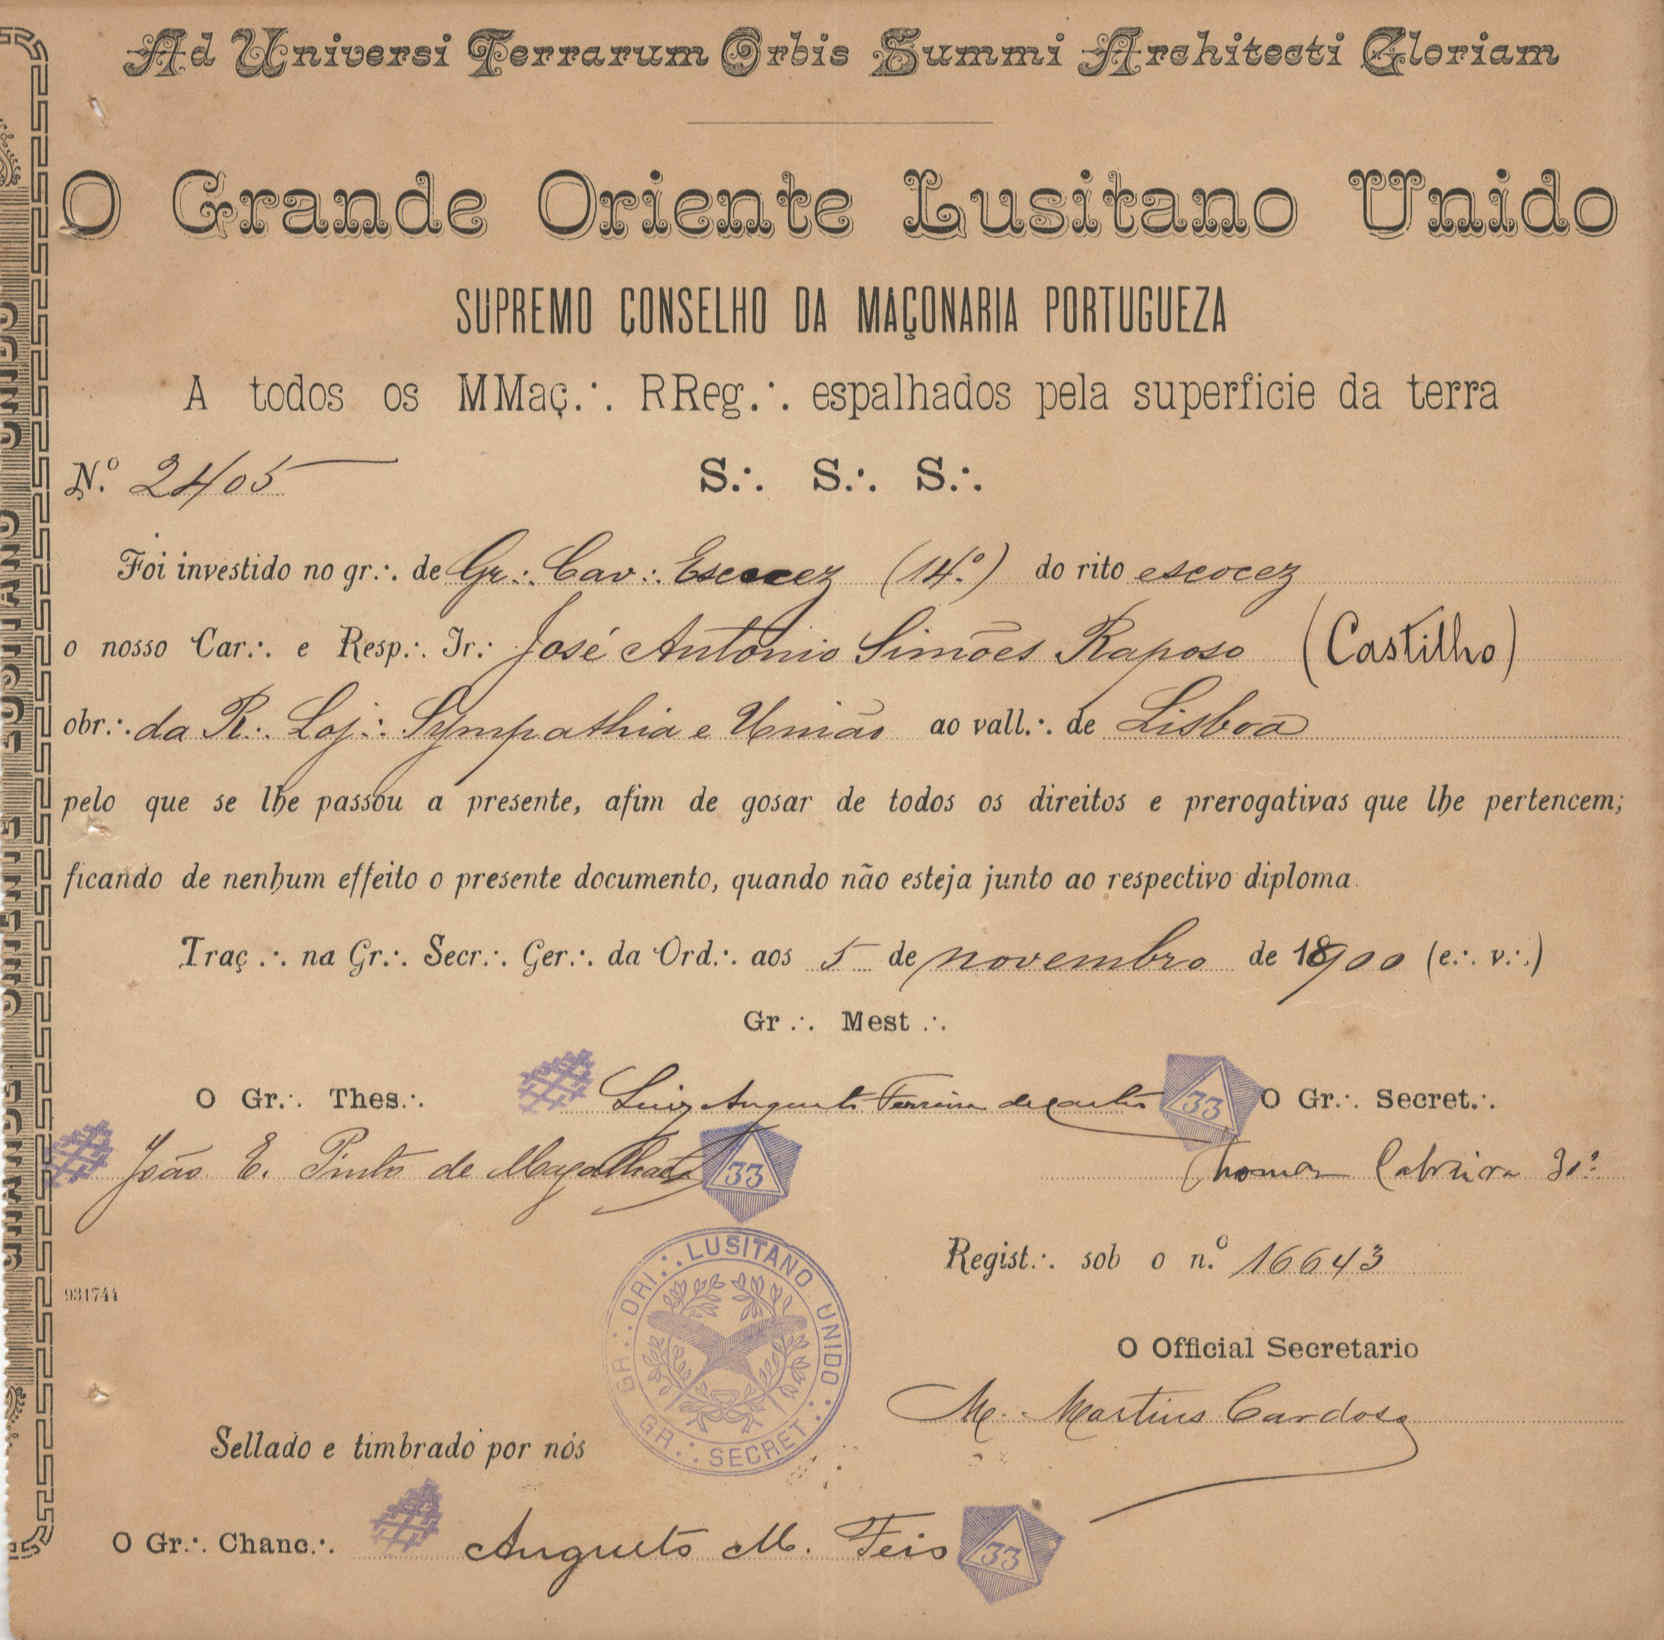 Ad Universi Terrarum Orbis Summi Architecti Gloriam
O Grande Oriente Lusitano Unido
SUPREMO CONSELHO DA MAÇONARIA PORTUGUEZA
A todos os MMaç.∴ RReg.∴ espalhados pela superficie da terra
N.º 2405
S.∴ S.∴ S.∴
Foi investido no gr.∴ de Gr.∴ Cav.∴ Escocez (14.º) do rito escocez
o nosso Car.∴ e Resp.∴ Ir.∴ José Antonio Simões Raposo (Castilho)
obr.∴ da R.∴ Loj.∴ Sympathia e União ao vall.∴ de Lisboa
pelo que se lhe passou a presente, afim de gosar de todos os direitos e prerogativas que lhe pertencem;
ficando de nenhum effeito o presente documento, quando não esteja junto ao respectivo diploma.
Traç.∴ na Gr.∴ Secr.∴ Ger.∴ da Ord.∴ aos 5 de novembro de 1900 (e.∴ v.∴)
Gr.∴ Mest.∴
O Gr.∴ Thes.∴
Luiz Augusto Ferreira de Castro 33
O Gr.∴ Secret.∴
João E. Pinto de Magalhães 33
Thomaz Cabreira
Regist.∴ sob o n.º 16643
931744
GR.∴ ORI.∴ LUSITANO UNIDO
GR.∴ SECRET.∴
O Official Secretario
M. Martins Cardoso
Sellado e timbrado por nós
O Gr.∴ Chanc.∴ Augusto M. Feio 33
GRANDE ORIENTE LUSITANO UNIDO